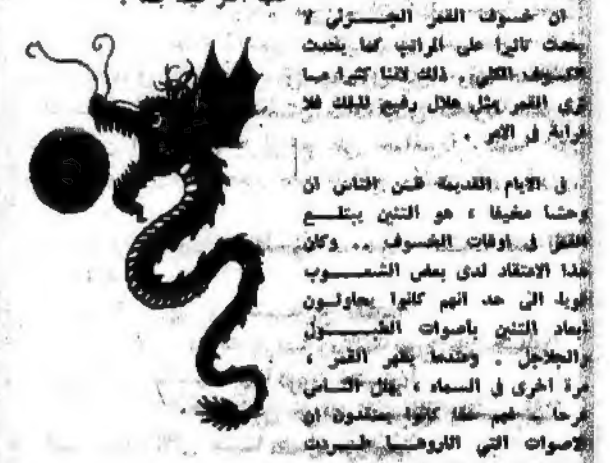 ان خسوف القمر الجـــزئي لا
يحدث تاثيرا على المراقب كما يحدث
الكسوف الكلي . ذلك لاننا كثيرا مـا
نرى القمر مثل هلال رفيع للغاية فلا
غرابة في الامر .
في الايام القديمة ظـن الناس ان
وحشا مخيفا ، هو التنين يبتلـــع
القمر في اوقات الخسوف .. وكان
هذا الاعتقاد لدى بعض الشعـــوب
قويا الى حد انهم كانوا يحاولـون
ابعاد التنين بأصوات الطبـــول
والجلاجل . وعندما يظهر القمر ،
مرة اخرى في السماء ، يهلل النـاس
فرحا . فهم حقا كانوا يعتقدون ان
الاصوات التي اثاروهـــا طـــردت